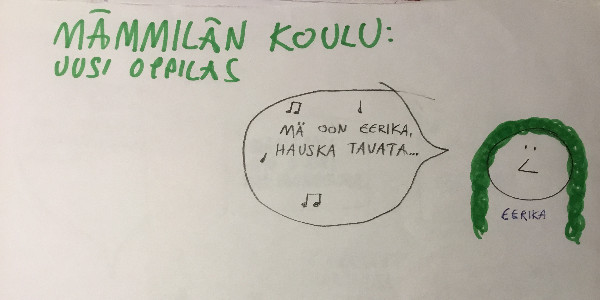 MÄMMILÄN KOULU:
UUSI OPPILAS
MÄ OON EERIKA,
HAUSKA TAVATA...
EERIKA